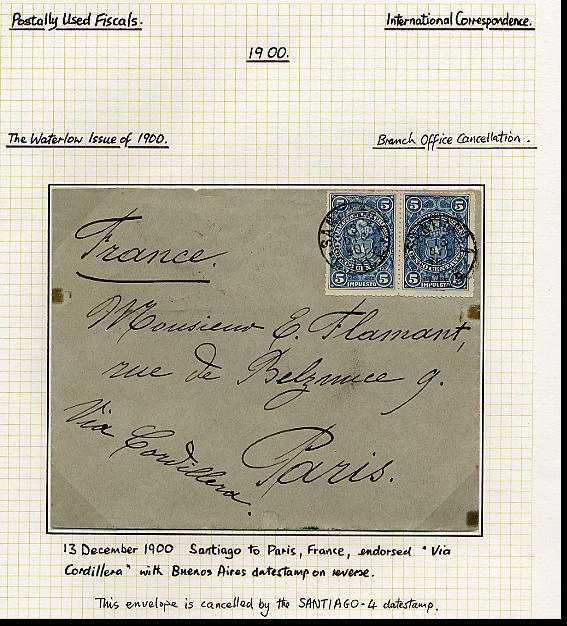 Postally Used Fiscals.
International Correspondence.
1900.
The Waterlow Issue of 1900.
Branch Office Cancellation.
5 5 5 5
IMPUESTO IMPUESTO
5 5 5 5
France.
Monsieur E. Flamant,
rue de Belzunce 9.
Via Cordillera.
Paris.
13 December 1900 Santiago to Paris, France, endorsed "Via
Cordillera" with Buenos Aires datestamp on reverse.
This envelope is cancelled by the SANTIAGO-4 datestamp.